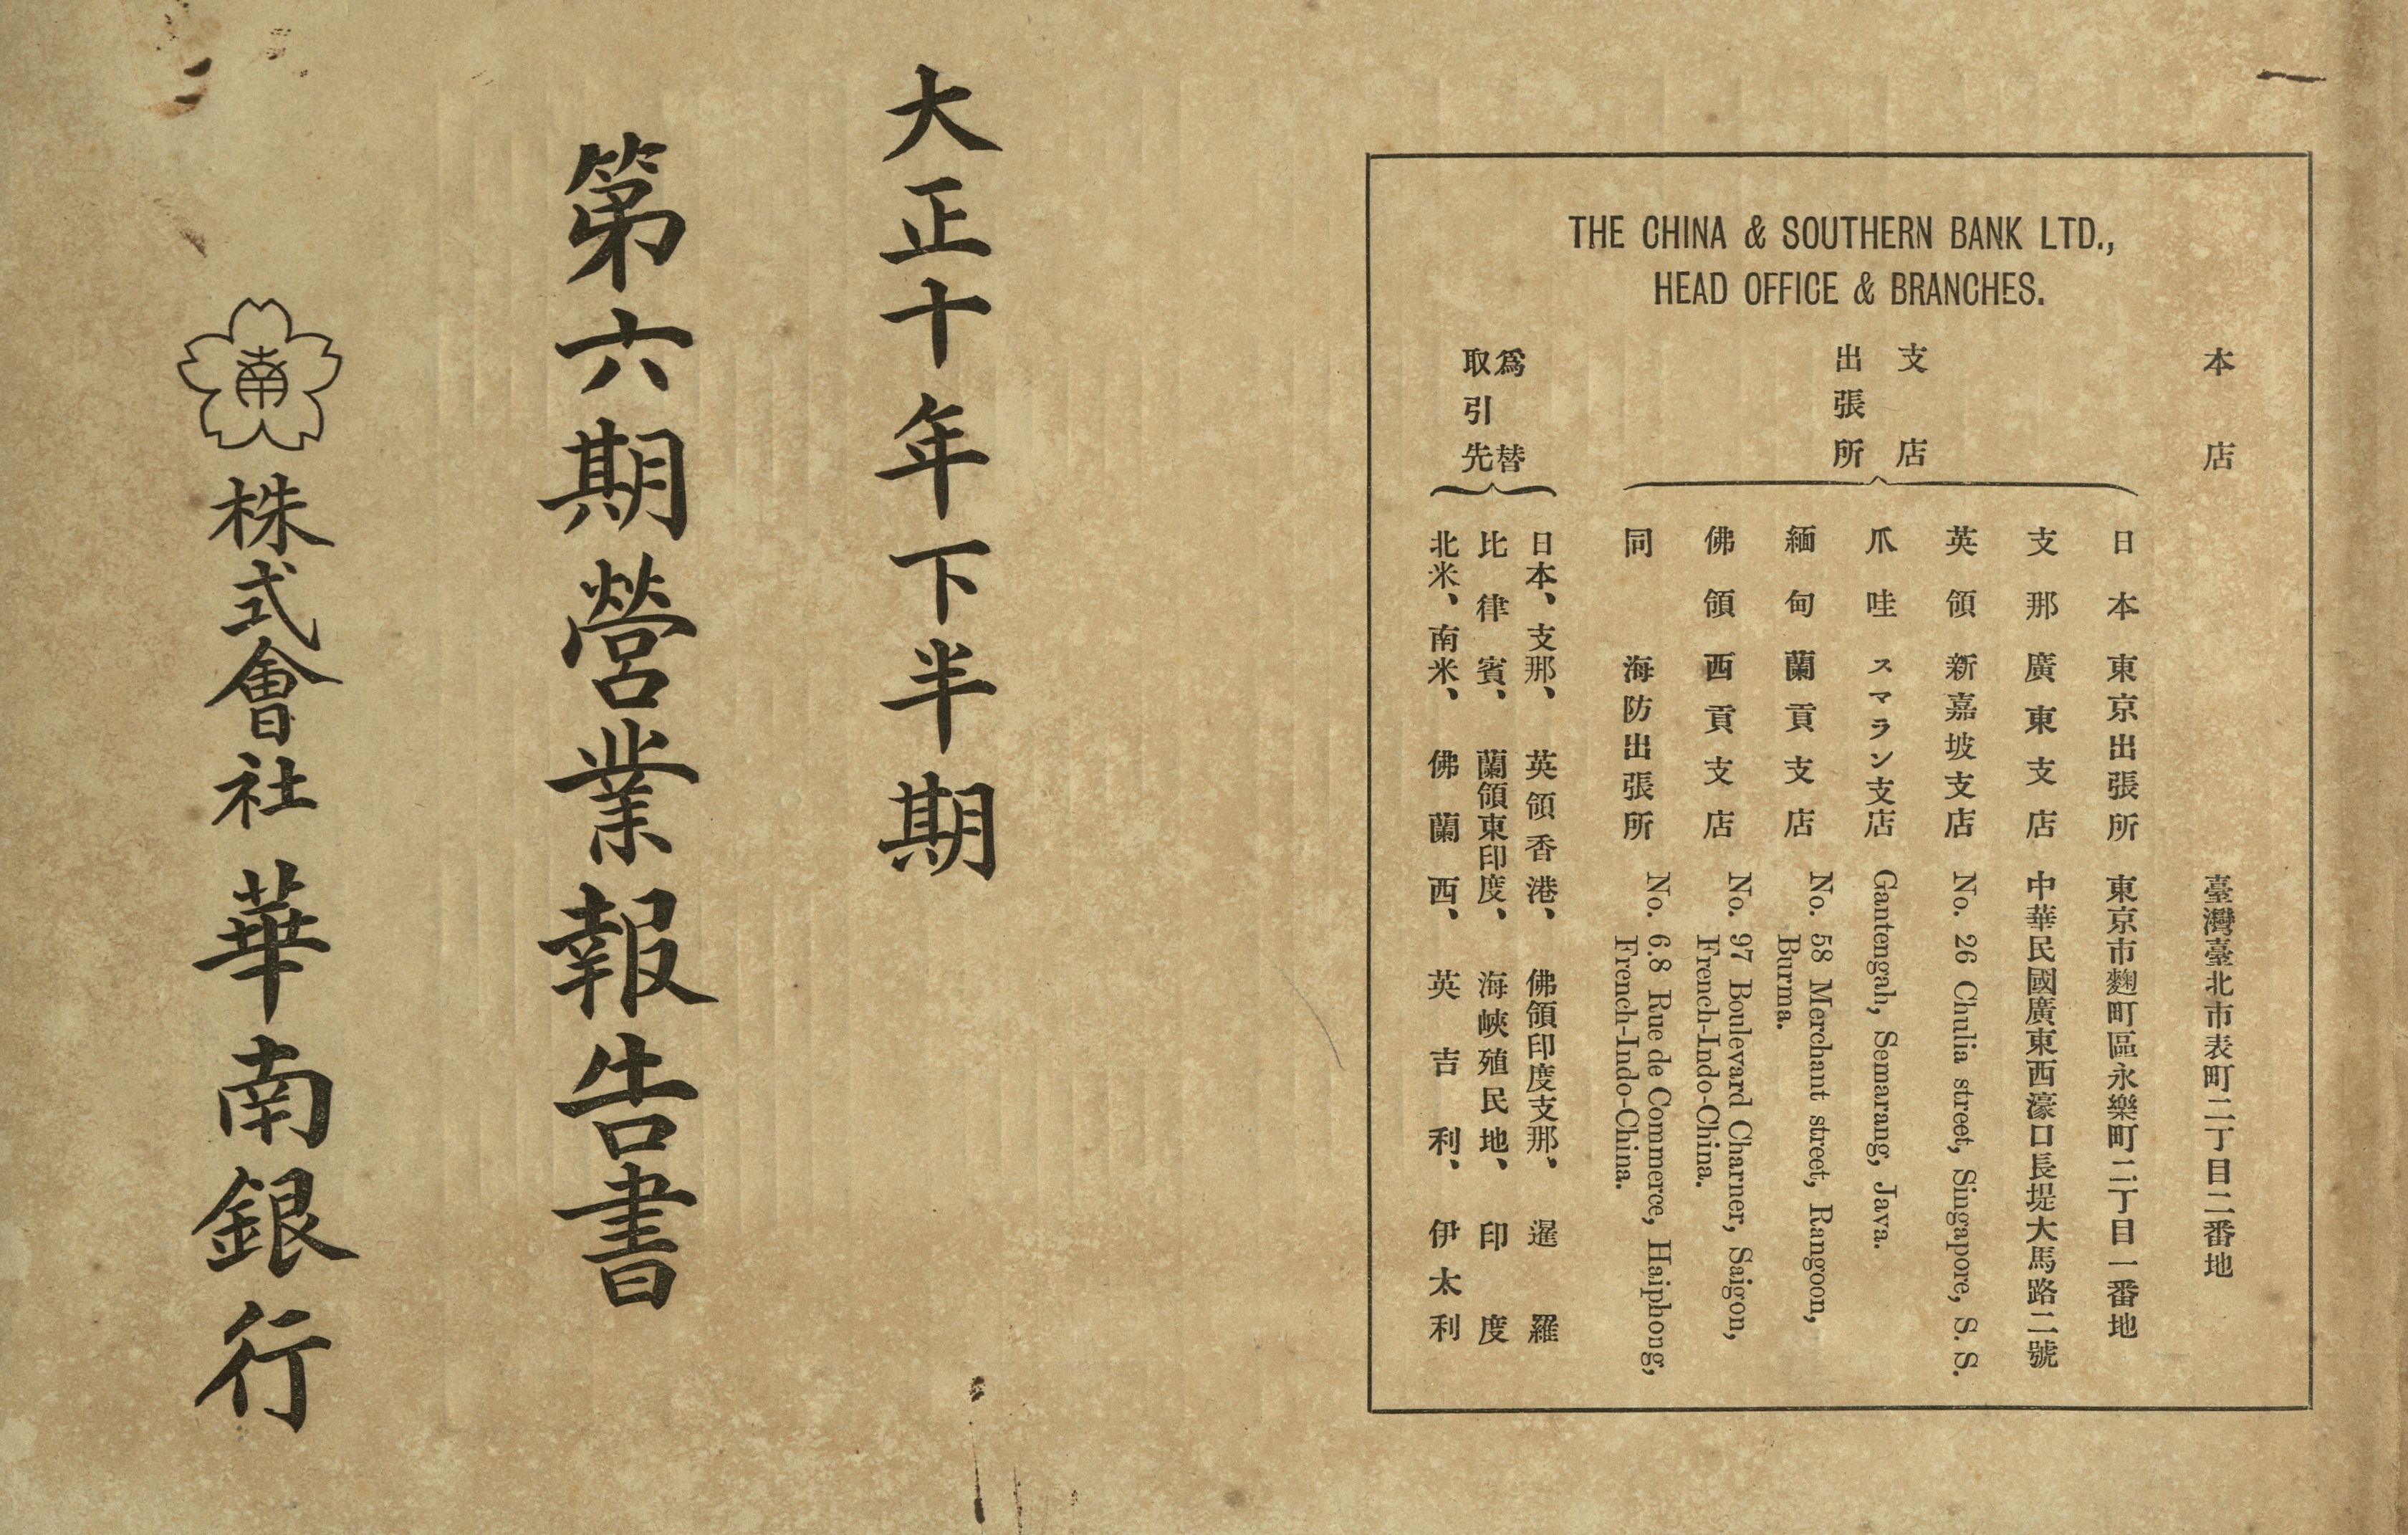 THE CHINA & SOUTHERN BANK LTD.,
HEAD OFFICE & BRANCHES.
本店 臺灣臺北市表町二丁目二番地
支店
出張所
日本東京出張所 東京市麴町區永樂町二丁目一番地
支那廣東支店 中華民國廣東西濠口長堤大馬路二號
英領新嘉坡支店 No. 26 Chulia street, Singapore, S. S.
爪哇スマラン支店 Gantengah, Semarang, Java.
緬甸蘭貢支店 No. 58 Merchant street, Rangoon,
Burma.
佛領西貢支店 No. 97 Boulevard Charner, Saigon,
French-Indo-China.
同 海防出張所 No. 6.8 Rue de Commerce, Haiphong,
French-Indo-China.
爲替
取引先
日本、支那、英領香港、佛領印度支那、暹羅
比律賓、蘭領東印度、海峽殖民地、印度
北米、南米、佛蘭西、英吉利、伊太利
大正十年下半期
第六期營業報告書
南
株式會社華南銀行